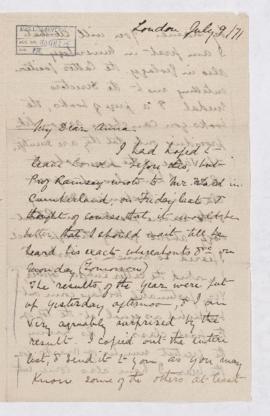 London July 9/71
My Dear Anna.
I had hoped to
leave London before this, but
Prof Ramsay wrote to Mr. Ward in
Cumberland, on Friday last &
thought of course that, it would be
better that I should wait till he
heard, his exact whereabouts &c on
Monday (Tomorrow)
The results of the year were put
up yesterday afternoon, & I am
very agreeably surprised by the
result. I copied out the entire
list, & send it to you as you may
know some of the others at least